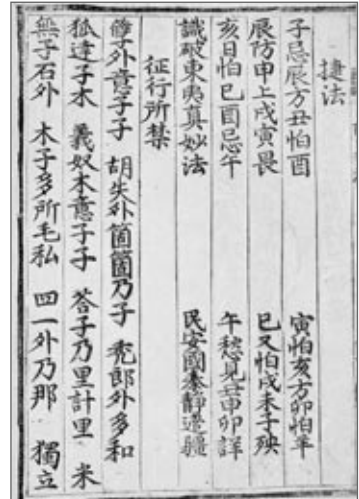 捷法
子忌辰方丑怕酉 寅怕亥方卯怕羊
辰防申上戌寅畏 巳又怕戌未子殃
亥日怕巳酉忌午 午愁見丑申卯詳
識破東夷真妙法 民安國泰靜邊疆
征行所禁
外意子子 胡失外箇箇乃子 禿郎外多和
狐違子木 義奴木意子子 荅子乃里計里 米
無子石外 木子多所毛私 四一外乃那 獨立